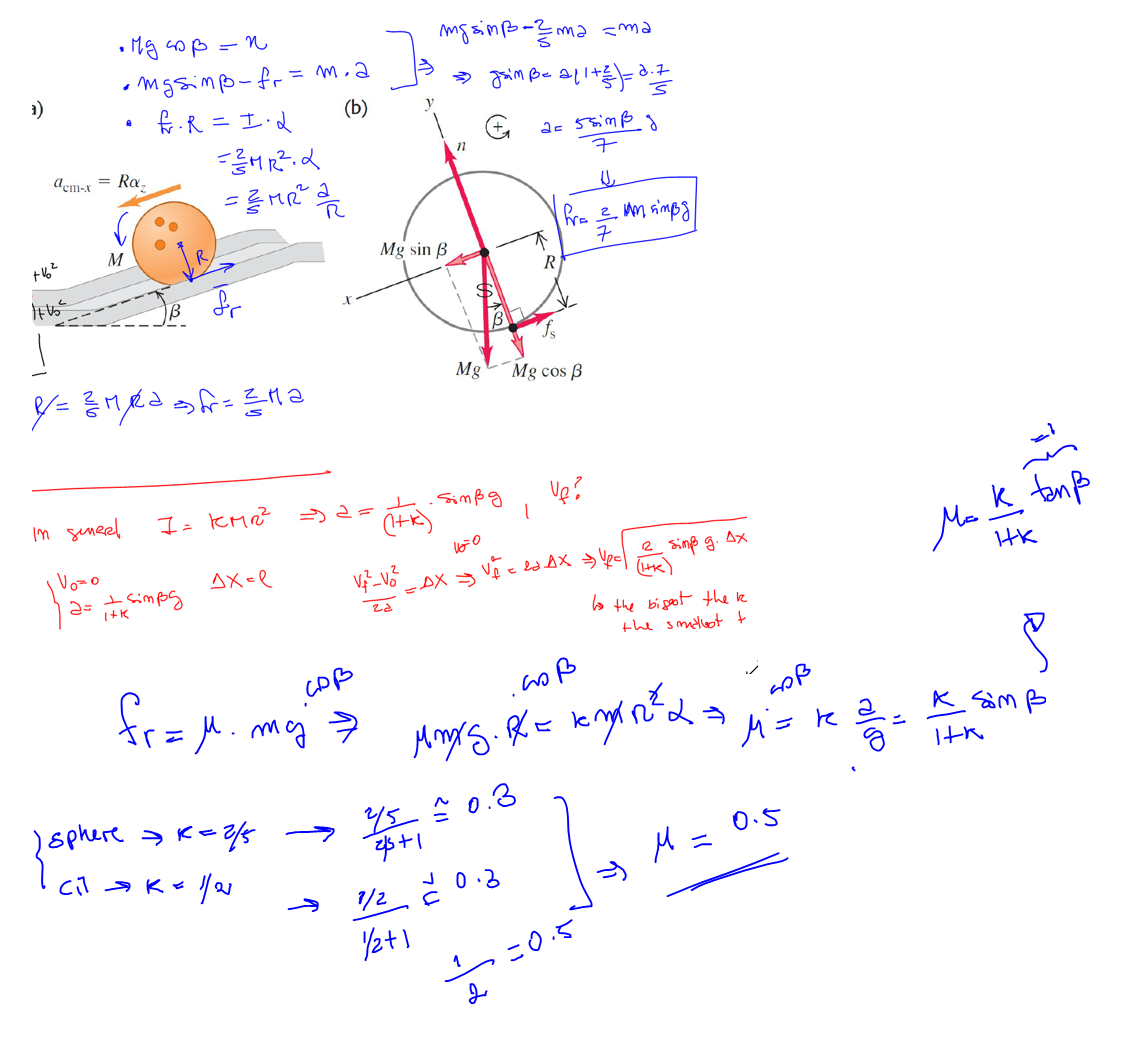 • Mg cos β = n
• mg sin β - fr = m · a
• fr · R = I · α
= 2/5 MR² · α
= 2/5 MR² a/R
⇒ mg sin β - 2/5 ma = ma
⇒ g sin β = a(1+2/5) = a · 7/5
a = 5 sin β/7 g
⇓
fr = 2/7 m sin β g
a)
a_cm-x = Rα_z
M
R
fr
β
+V₀²
1+V₀²
(b)
y
n
Mg sin β
R
x
S
β
f_s
Mg
Mg cos β
R = 2/5 M R a ⇒ fr = 2/5 M a
In general I = KMR² ⇒ a = 1/(1+K) · sin β g , Vf?
V₀=0
a = 1/1+K sin β g
ΔX = l
Vf²-V₀²/2a = ΔX ⇒ V₀=0 Vf² = 2a ΔX ⇒ Vf = √2/(1+K) sin β g · ΔX
the bigest the K
the smallest t
μ = K/1+K tan β
=1
fr = μ · mg cos β ⇒ μ m g · R cos β = k m R² α ⇒ μ cos β = k a/g = K/1+K sin β
sphere → K = 2/5 → 2/5 / 2/5+1 ≅ 0.3
cil → K = 1/2 → 1/2 / 1/2+1 ≅ 0.3
⇒ μ = 0.5
1/2 = 0.5